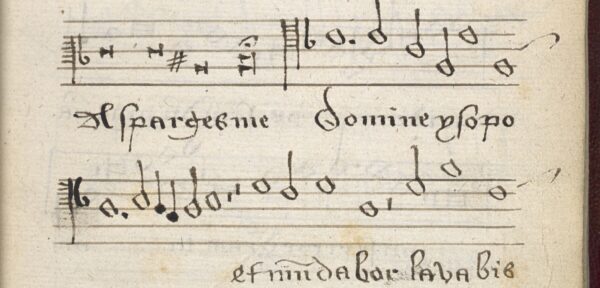 Asparges me Domine ysopo
et mūdabor lavabis